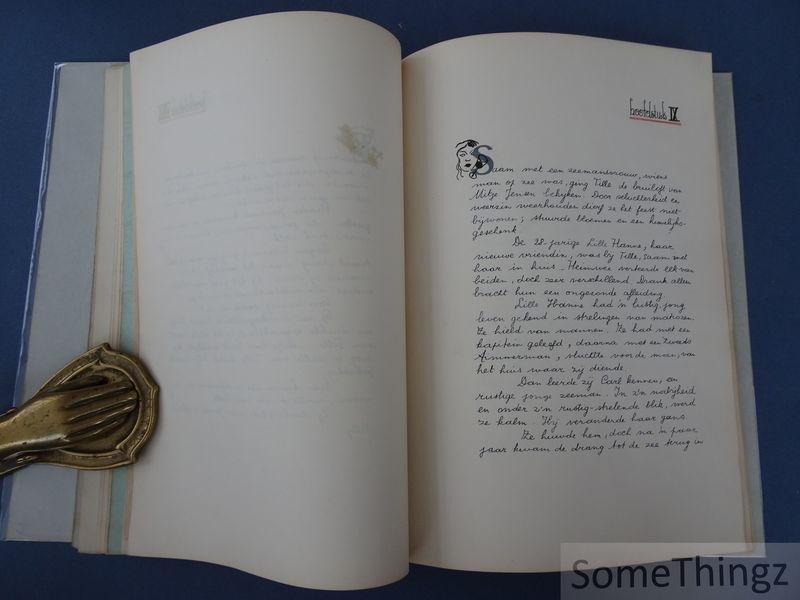 hoofdstuk IX
Saam met een zeemansvrouw, wiens
man op zee was, ging Tille de bruiloft van
Mitze Jensen bekijken. Door schuchterheid en
weerzin weerhouden dorst ze het feest niet
bijwonen; stuurde bloemen en een huwelijks-
geschenk.
De 28-jarige Lille Hanne, haar
nieuwe vriendin, was bij Tille, saam met
haar in huis. Heimwee verteerde elk van
beiden, doch zeer verschillend. Drank alleen
bracht hun een ongezonde afleiding
Lille Hanne had 'n lustig, jong
leven gekend in strelingen van matrozen.
Ze hield van mannen. Ze had met een
kapitein geleefd, daarna met een
timmerman, vluchtte voor de man, van
het huis waar zij diende.
Dan leerde zij Carl kennen, en
rustige jonge zeeman. In z'n nabijheid
en onder z'n rustig-strelende blik, werd
ze kalm. Hij veranderde haar gans.
Ze huwde hem, doch na 'n paar
jaar kwam de drang tot de zee terug in
SomeThingz